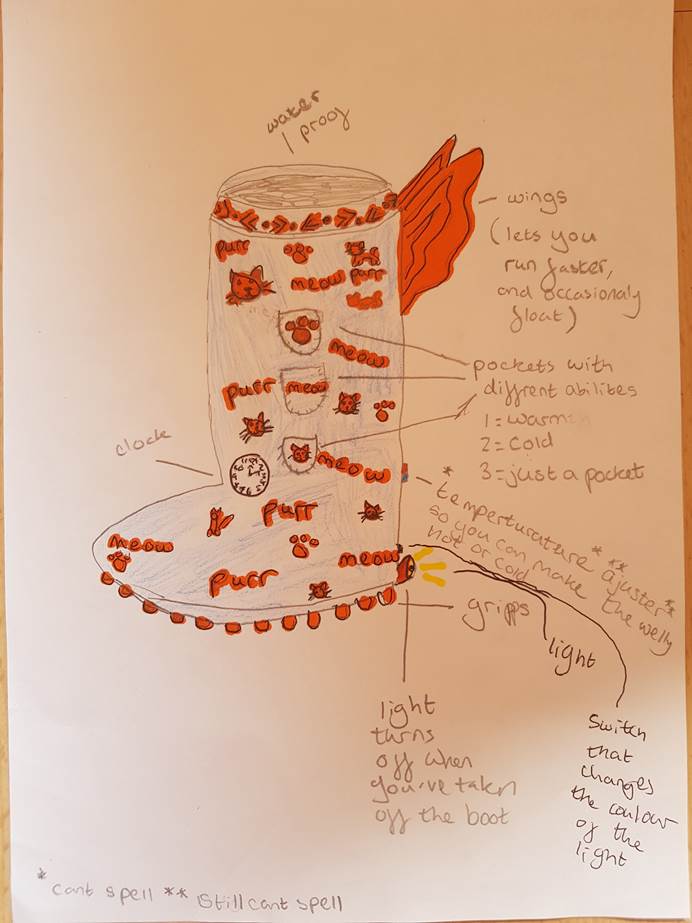 water
proof
wings
(lets you
run faster,
and occasionaly
float)
purr
meow purr
meow
pockets with
diffrent abilites
1 = warm
2 = cold
3 = just a pocket
purr meow
clock
meow
* temperturature * ajuster **
so you can make the welly
hot or cold
purr
meow
meow
purr
gripps
light
light
turns
off when
you've taken
off the boot
Switch
that
changes
the coulour
of the
light
* cant spell ** still cant spell